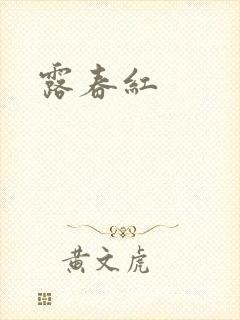 露春紅
黄文虎